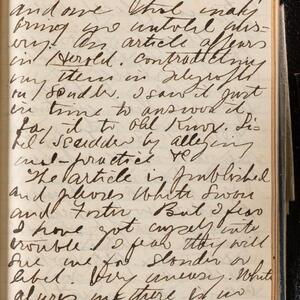 and one that may
bring me untold mis-
ery. An article appears
in Herold. contradicting
my item in Telegraph
on Scudder. I saw it just
in time to answer it
lay it to Old Knox. Li-
bel Scudder by alleging
mal-practice &c
The article is published
and pleases White Swan
and Foster. But I fear
I have got myself into
trouble. I fear they will
sue me for slander or
label. Very uneasy. White
assures me there is no